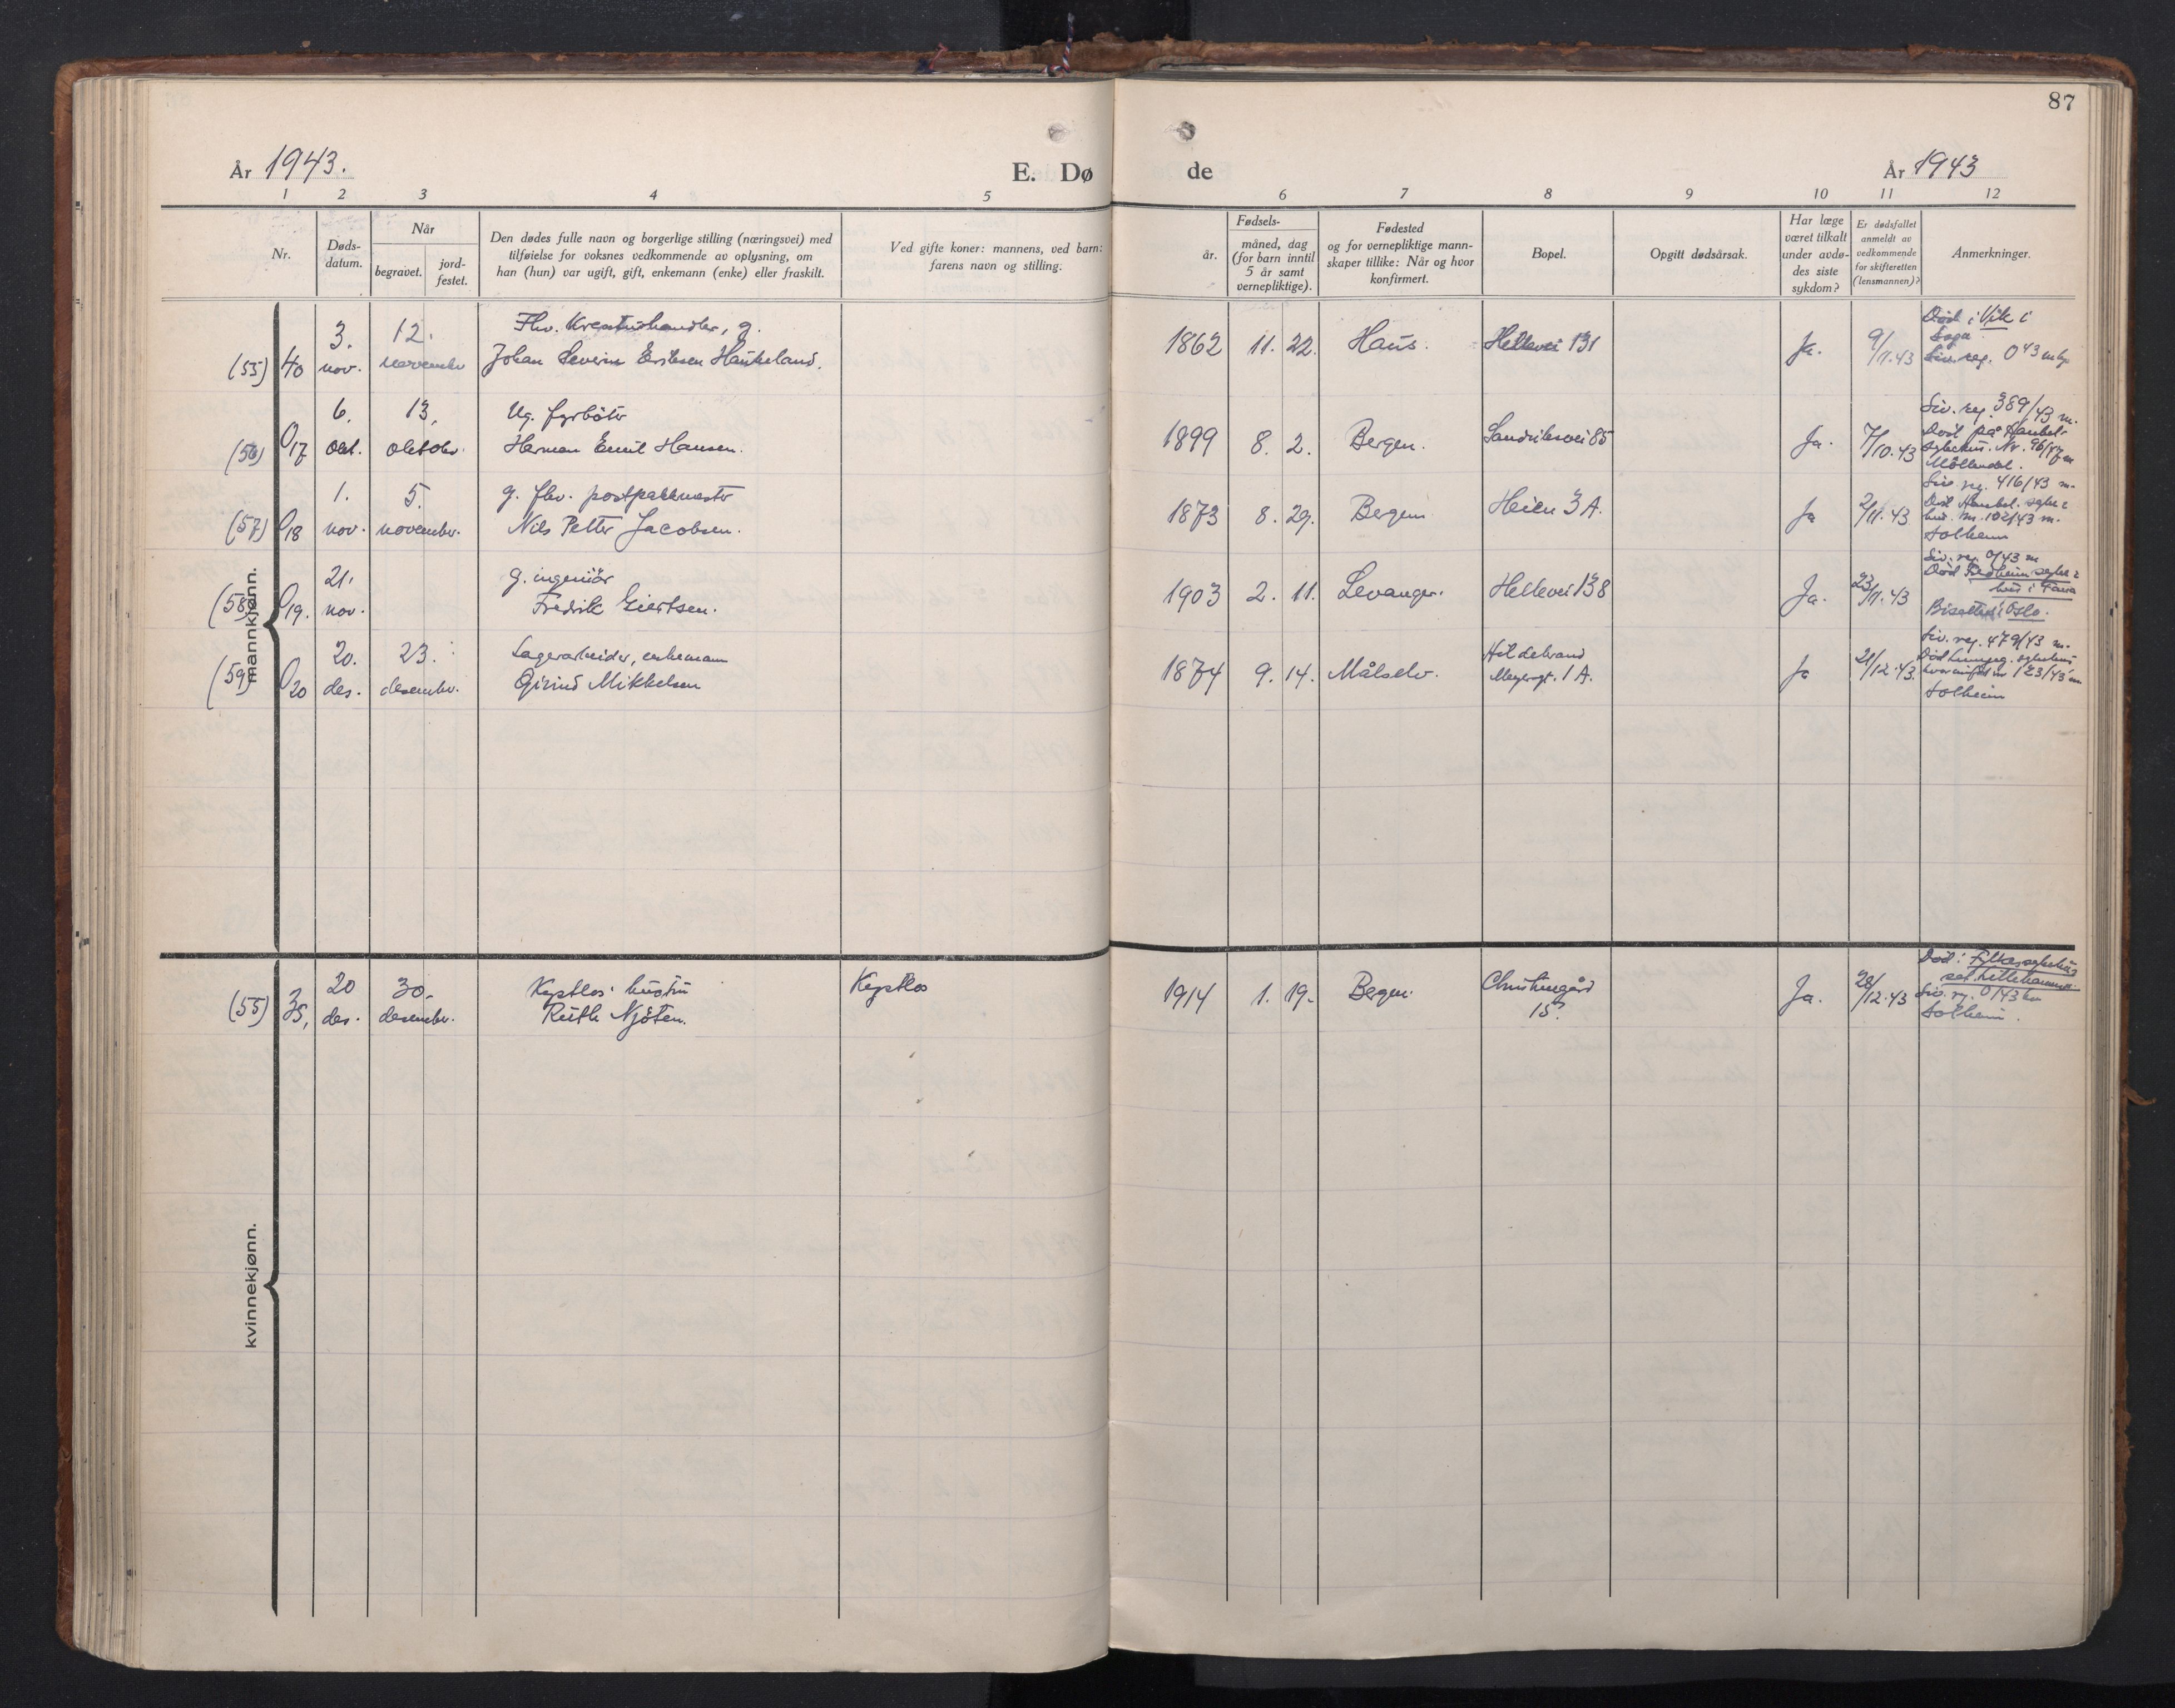 87
År 1943.
E. Dø de
År 1943
1 2 3 4 5 6 7 8 9 10 11 12
Nr.
Døds-
datum.
Når
begravet.
jord-
festet.
Den dødes fulle navn og borgerlige stilling (næringsvei) med
tilføielse for voksnes vedkommende av oplysning, om
han (hun) var ugift, gift, enkemann (enke) eller fraskilt.
Ved gifte koner: mannens, ved barn:
farens navn og stilling.
Fødsels-
år.
måned, dag
(for barn inntil
5 år samt
vernepliktige).
Fødested
og for vernepliktige mann-
skaper tillike: Når og hvor
konfirmert.
Bopel.
Opgitt dødsårsak.
Har læge
været tilkalt
under avdø-
des siste
sykdom?
Er dødsfallet
anmeldt av
vedkommende
for skifteretten
(lensmannen)?
Anmerkninger.
mannkjønn.
(55) 40
3.
nov.
12.
november
Fhv. Kreaturhandler, g.
Johan Severin Eriksen Haukeland.
1862 11. 22. Haus. Hellevei 131 Ja. 9/11.43
Død i Vik i
Sogn
Siv. reg. 0 43
(56) 017
6.
okt.
13.
oktober.
Ug. fyrbøter
Herman Emil Hansen.
1899 8. 2. Bergen. Sandviksvei 85 Ja. 7/10.43
Siv. reg. 389/43 m.
Død på Haukel.
sykehus. Nr. 96/43 m
Møllendal.
(57) 018
1.
nov.
5.
november.
g. fhv. postpakkmester
Nils Petter Jacobsen.
1873 8. 29. Bergen Heien 3 A. Ja 2/11.43
Siv. reg. 416/43 m.
Død Haukel. syke=
hus. nr. 102/43 m.
Solheim
(58) 019.
21.
nov.
g. ingeniør
Fredrik Giertsen.
1903 2. 11. Levanger. Hellevei 138 Ja. 23/11.43
Siv. reg. 0/43 m
Død
hus i Fana
Bisettes i Oslo.
(59) 020
20.
des.
23.
desember.
Lagerarbeider, enkemann
Eivind Mikkelsen
1874 9. 14. Målselv.
Hildebrand
Meyersgt. 1 A.
Ja 21/12.43
Siv. reg. 479/43 m.
Død Lungeg. sykehus
hvor innført nr 123/43 m
Solheim
kvinnekjønn.
(55) 35,
20
des.
30.
desember.
Kystlos' hustru
Ruth Njøten.
Kystlos
1914 1. 19. Bergen.
Christinegård
15.
Ja. 28/12.43
Død i Fylkessykehus
set Lillehammer.
Siv. reg. 0/43 kv
Solheim.